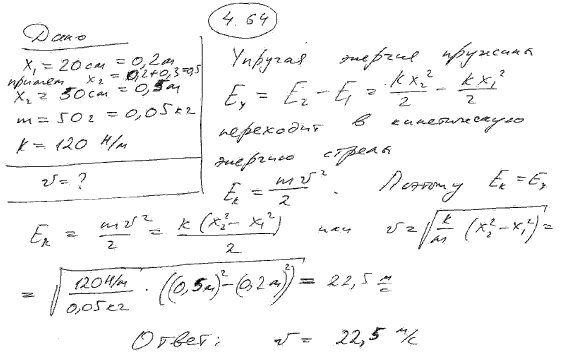 4.64
Дано
x₁ = 20 см = 0,2 м
примем x₂ = 0,2 + 0,3 = 0,5
x₂ = 50 см = 0,5 м
m = 50 г = 0,05 кг
k = 120 Н/м
v = ?
Упругая энергия пружины
Eу = E₂ − E₁ = kx₂²/2 − kx₁²/2
переходит в кинетическую
энергию стрелы
Eк = mv²/2 . Поэтому Eк = Eу
Eк = mv²/2 = k(x₂² − x₁²)/2 или v = √(k/m (x₂² − x₁²)) =
= √(120 Н/м / 0,05 кг · ((0,5 м)² − (0,2 м)²)) = 22,5 м/с
Ответ: v = 22,5 м/с